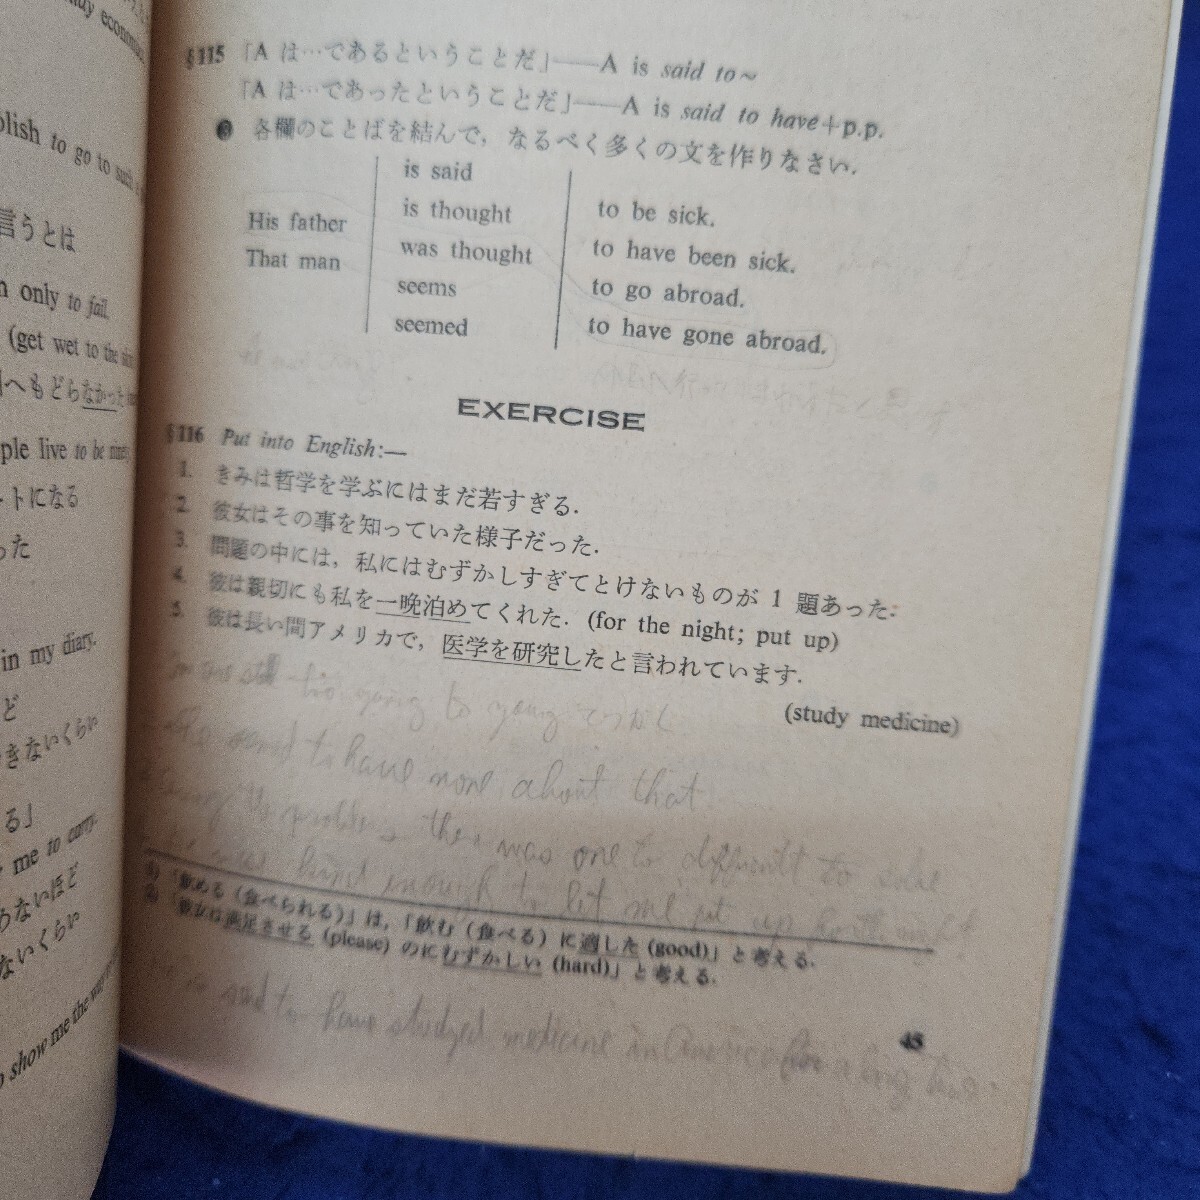 economic
§115 「A は…であるということだ」——A is said to~
「A は…であったということだ」——A is said to have+p.p.
各欄のことばを結んで，なるべく多くの文を作りなさい．
His father
That man
is said
is thought
was thought
seems
seemed
to be sick.
to have been sick.
to go abroad.
to have gone abroad.
EXERCISE
§116 Put into English:—
1. きみは哲学を学ぶにはまだ若すぎる．
2. 彼女はその事を知っていた様子だった．
3. 問題の中には，私にはむずかしすぎてとけないものが 1 題あった：
4. 彼は親切にも私を一晩泊めてくれた．(for the night; put up)
5. 彼は長い間アメリカで，医学を研究したと言われています．
(study medicine)
to going to young
to have now about that
there was one to difficult to solve
kind enough to let me put up
1) 「飲める（食べられる）」は，「飲む（食べる）に適した (good)」と考える．
2) 「彼女は満足させる (please) のにむずかしい (hard)」と考える．
said to have studyed medicine in America for a long time.
45
to go to such
言うとは
only to fail.
(get wet to the skin
へもどらなかった
ple live to be ninety.
トになる
った
in my diary.
ど
きないくらい
る」
me to carry.
らないほど
ないくらい
show me the way